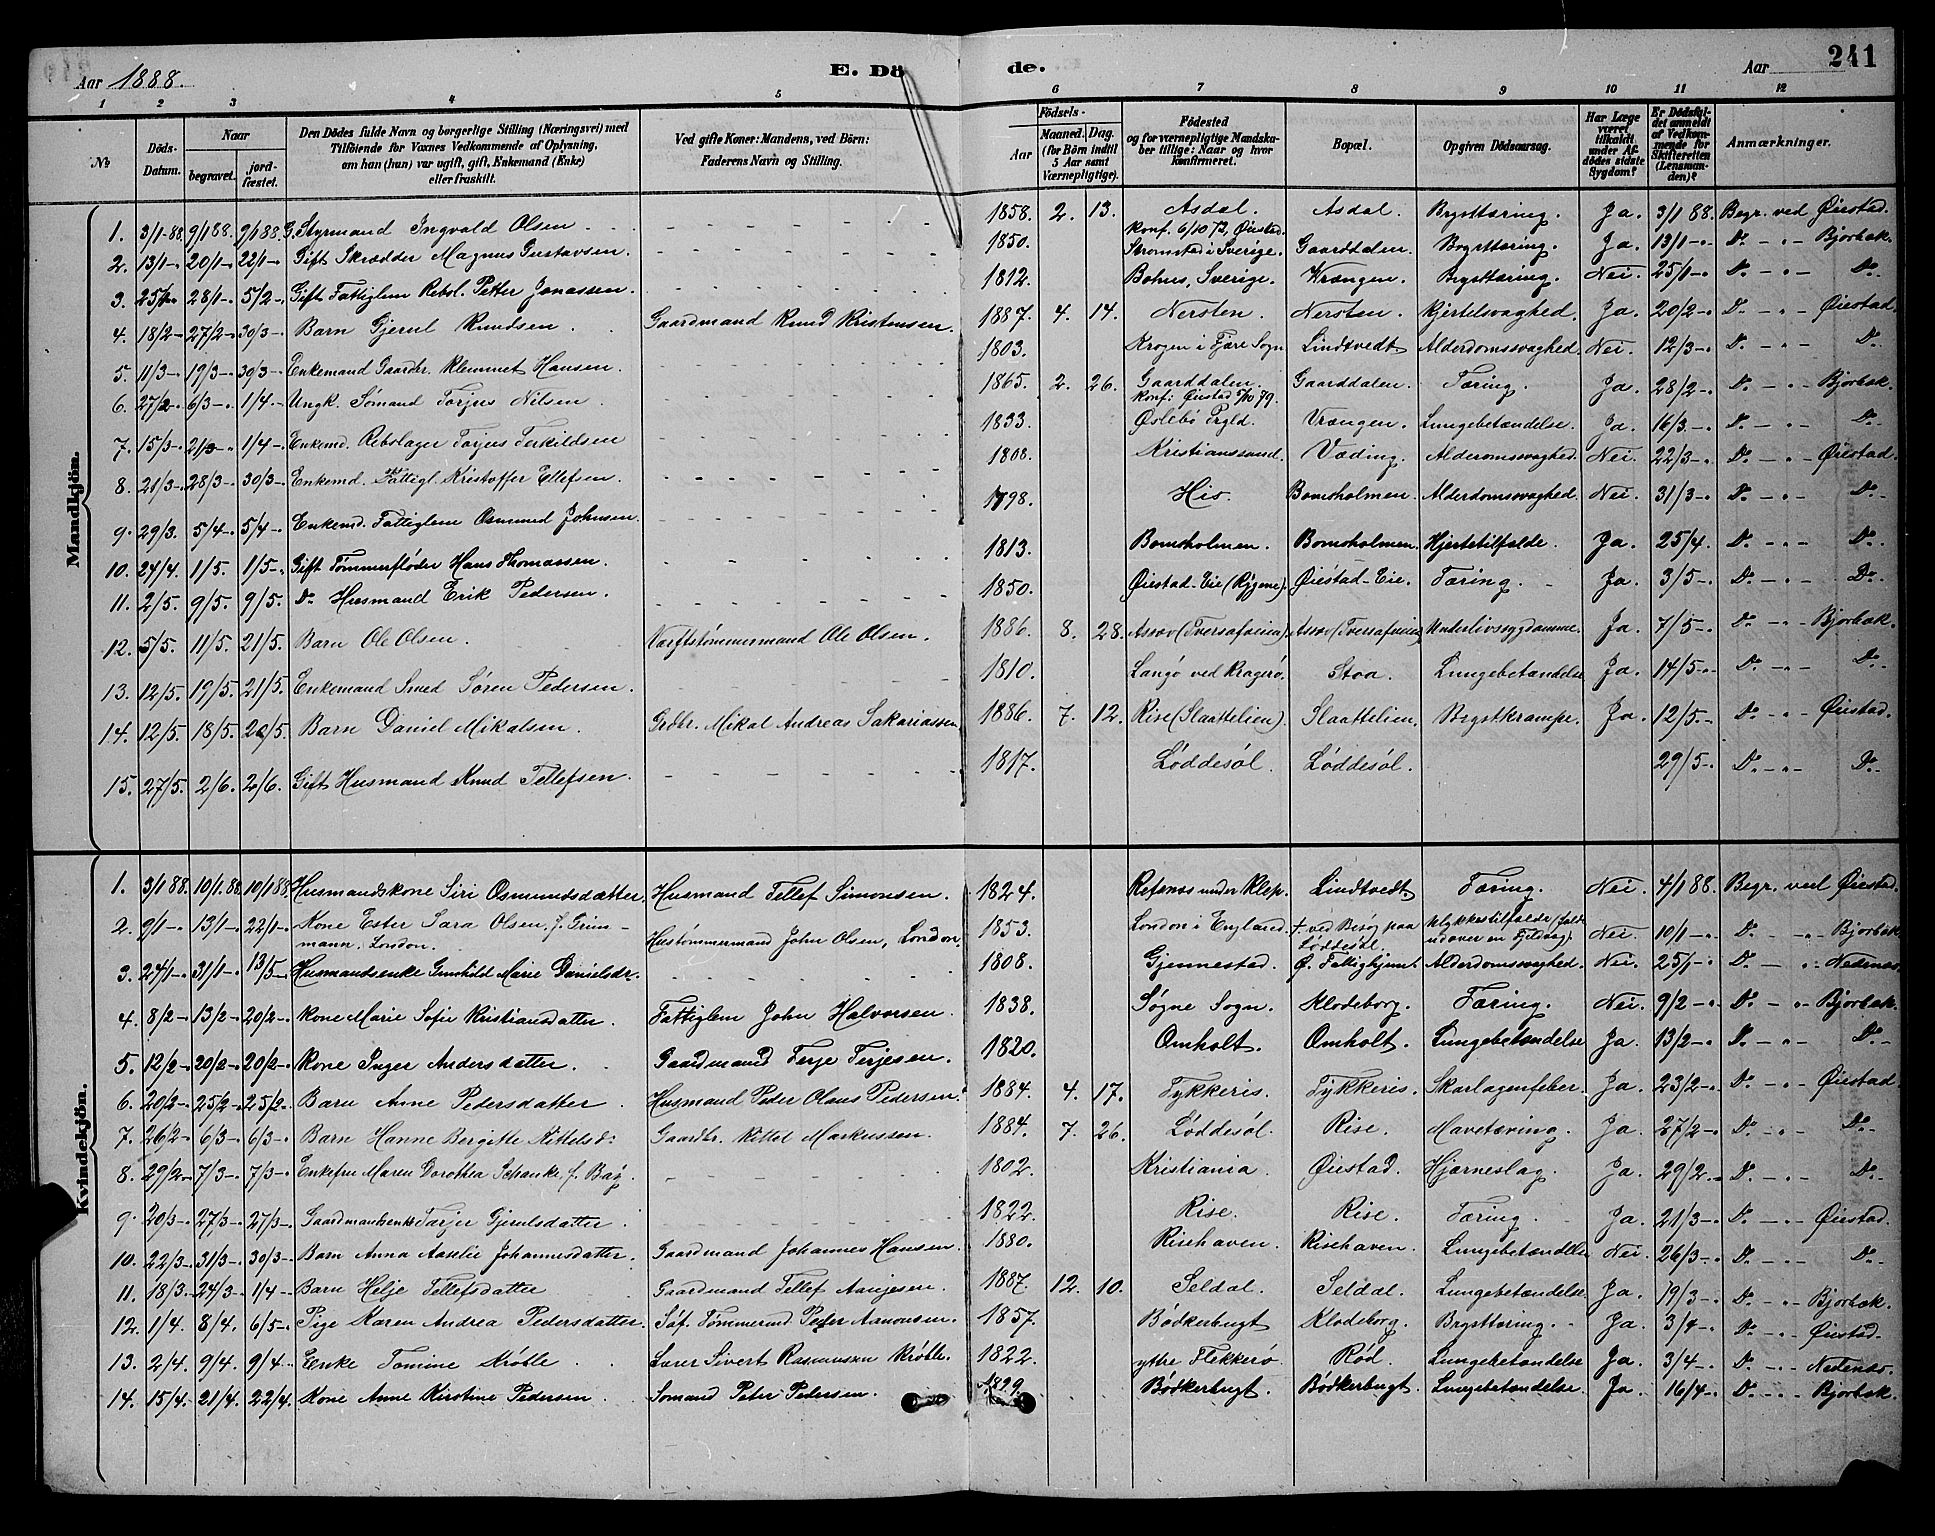 Aar 1888. E. Dö de. Aar 241
1 2 3 4 5 6 7 8 9 10 11 12
No Döds-Datum. Naar begravet. jord-fæstet. Den Dödes fulde Navn og borgerlige Stilling (Næringsvei) med Tilföiende for Voxnes Vedkommende af Oplysning, om han (hun) var ugift, gift, Enkemand (Enke) eller fraskilt. Ved gifte Koner: Mandens, ved Börn: Faderens Navn og Stilling. Födsels- Aar Maaned. Dag. (for Börn indtil 5 Aar samt Værnepligtige). Födested og for værnepligtige Mandskaber tillige: Naar og hvor konfirmeret. Bopæl. Opgiven Dödsaarsag. Har Læge været tilkaldt under Afdödes sidste Sygdom? Er Dödsfaldet anmeldt af Vedkommende for Skifteretten (Lensmanden)? Anmærkninger.
Mandkjön.
1. 3/1 88. 9/1 88. 9/1 88. G. Styrmand Ingvald Olsen 1858. 2. 13. Asdal. Konf. 6/10 72, Øiestad. Asdal. Brysttæring. Ja. 3/1 88. Begr. ved Øiestad.
2. 13/1 20/1 22/1 Gift Skrædder Magnus Gustavsen. 1850. Strømstad i Sverige. Gaarddalen. Brysttæring. Ja. 13/1 Do Bjorbæk.
3. 25/1 28/1 5/2 Gift Fattiglem Rebsl. Petter Jonassen. 1812. Bohus, Sverige. Vrængen. Brysttæring. Nei. 25/1 Do Do
4. 18/2 27/2 30/3 Barn Gjerul Knudsen. Gaardmand Knud Kristensen. 1887. 4. 14. Nersten. Nersten. Kjertelsvaghed. Ja. 20/2 Do Øiestad.
5. 11/3 19/3 30/3 Enkemand Gaardbr. Klemmet Hansen. 1803. Krogen i Fjære Sogn Lindtvedt Alderdomssvaghed. Nei. 12/3 Do Do
6. 27/2 6/3 1/4 Ungk. Sømand Torjus Nilsen. 1865. 2. 26. Gaarddalen. Konf: Øiestad 5/10 79. Gaarddalen. Tæring. Ja. 28/2 Do Bjorbæk.
7. 15/3 21/3 1/4 Enkemd. Rebslager Torjus Terkildsen 1833. Øslebø Prgld. Vrængen. Lungebetændelse. Ja. 16/3 Do Do
8. 21/3 28/3 30/3 Enkemd. Fattigl. Kristoffer Ellefsen. 1808. Kristianssand. Væding. Alderomssvaghed. Nei. 22/3 Do Øiestad.
9. 29/3. 5/4 5/4 Enkemd. Fattiglem Osmund Johnsen. 1798. His. Bomsholmen. Alderdomssvaghed. Nei. 31/3 Do Do
10. 24/4. 1/5. 1/5 Gift Tømmerfløder Hans Thomassen. 1813. Bomsholmen. Bomsholmen. Hjertetilfælde. Ja. 25/4. Do Do
11. 2/5. 9/5. 9/5. Do Husmand Erik Pedersen. 1850. Øiestad-Eie (Rygene). Øiestad-Eie. Tæring. Ja. 3/5 Do Do
12. 5/5. 11/5. 21/5. Barn Ole Olsen. Værftstømmermand Ole Olsen. 1886. 8. 28. Underlivssygdomme. Ja. 7/5 Do Bjorbæk.
13. 12/5. 19/5. 21/5. Enkemand Smed Søren Pedersen. 1810. Langø ved Kragerø. Stoa. Lungebetændelse Ja. 14/5 Do Do
14. 12/5. 18/5. 20/5. Barn Daniel Mikalsen. Grdbr. Mikal Andreas Sakariassen 1886. 7. 12. Rise (Slaattelien). Slaattelien. Brystkrampe. Ja. 12/5 Do Øiestad.
15. 27/5. 2/6. 2/6. Gift Husmand Knud Tellefsen. 1817. Løddesøl. Løddesøl. 29/5 Do Do
Kvindekjön.
1. 3/1 88. 10/1 88. 10/1 88. Husmandskone Siri Osmundsdatter Husmand Tellef Simonsen. 1824. Refsnes under Klep. Lindtvedt. Tæring. Nei. 4/1 88. Begr. ved Øiestad.
2. 9/1 13/1 22/1 Kone Ester Sara Olsen, f. Grimmann. London. Hustømmermand John Olsen, London. 1853. London i England. † ved Besøg paa Løddesøl. Ulykkestilfælde (faldt udover en Fjeldvæg). Nei. 10/1 Do Bjorbæk
3. 24/1 31/1 13/5 Husmandsenke Gunhild Marie Danielsdr. 1808. Gjennestad. Ø. Fattighjem. Alderdomssvaghed. Nei. 25/1 Do Nedenæs.
4. 8/2 13/2 20/2 Kone Marie Sofie Kristiansdatter. Fattiglem John Halvorsen. 1838. Søgne Sogn. Klodeborg. Tæring. Nei. 9/2 Do Bjorbæk.
5. 12/2 20/2 20/2 Kone Inger Andersdatter. Gaardmand Terje Terjesen. 1820. Omholt. Omholt. Lungebetændelse Ja. 13/2 Do Do
6. 20/2 25/2 25/2 Barn Anne Pedersdatter Husmand Peder Olaus Pedersen. 1884. 4. 17. Tykkeris. Tykkeris. Skarlagenfeber. Ja. 23/2 Do Øiestad.
7. 26/2 6/3 6/3 Barn Hanne Bergitte Kittelsd: Gaardbr. Kittel Markussen. 1884. 7. 26. Løddesøl. Rise. Mavetæring. Ja. 27/2 Do Do
8. 29/2 7/3 7/3 Enkefru Maren Dorothea Schanke f. Bay. 1802. Kristiania. Øiestad. Hjerneslag. Ja. 29/2 Do Do
9. 20/3 27/3 27/3 Gaardmandsenke Torjer Gjerulsdatter. 1822. Rise. Rise. Tæring. Ja. 21/3 Do Øiestad.
10. 22/3 31/3 30/3 Barn Anna Aaselie Johannesdatter. Gaardmand Johannes Hansen. 1880. Risehaven. Risehaven. Lungebetændelse Nei. 26/3 Do Do
11. 18/3. 24/3 1/4 Barn Helje Tellefsdatter Gaardmand Tellef Aanjesen. 1887. 12. 10. Seldal. Seldal. Lungebetændelse. Ja. 19/3 Do Bjorbæk.
12. 1/4. 8/4. 6/5 Pige Karen Andrea Pedersdatter. Søf. Tømmermd Peder Aanonsen. 1857. Bødkerbugt Klodeborg. Brysttæring. Ja. 3/4 Do Øiestad.
13. 2/4. 9/4. 9/4. Enke Tomine Krøtle. Lærer Sivert Rasmussen Krøtle. 1822. ytre Flekkerø. Rød. Lungebetændelse Ja. 3/4 Do Nedenæs.
14. 15/4. 21/4. 22/4. Kone Anne Kirstine Pedersen. Sømand Peter Pedersen. 1829. Bødkerbugt. Bødkerbugt. Lungebetændelse. Ja. 16/4 Do Bjorbæk.